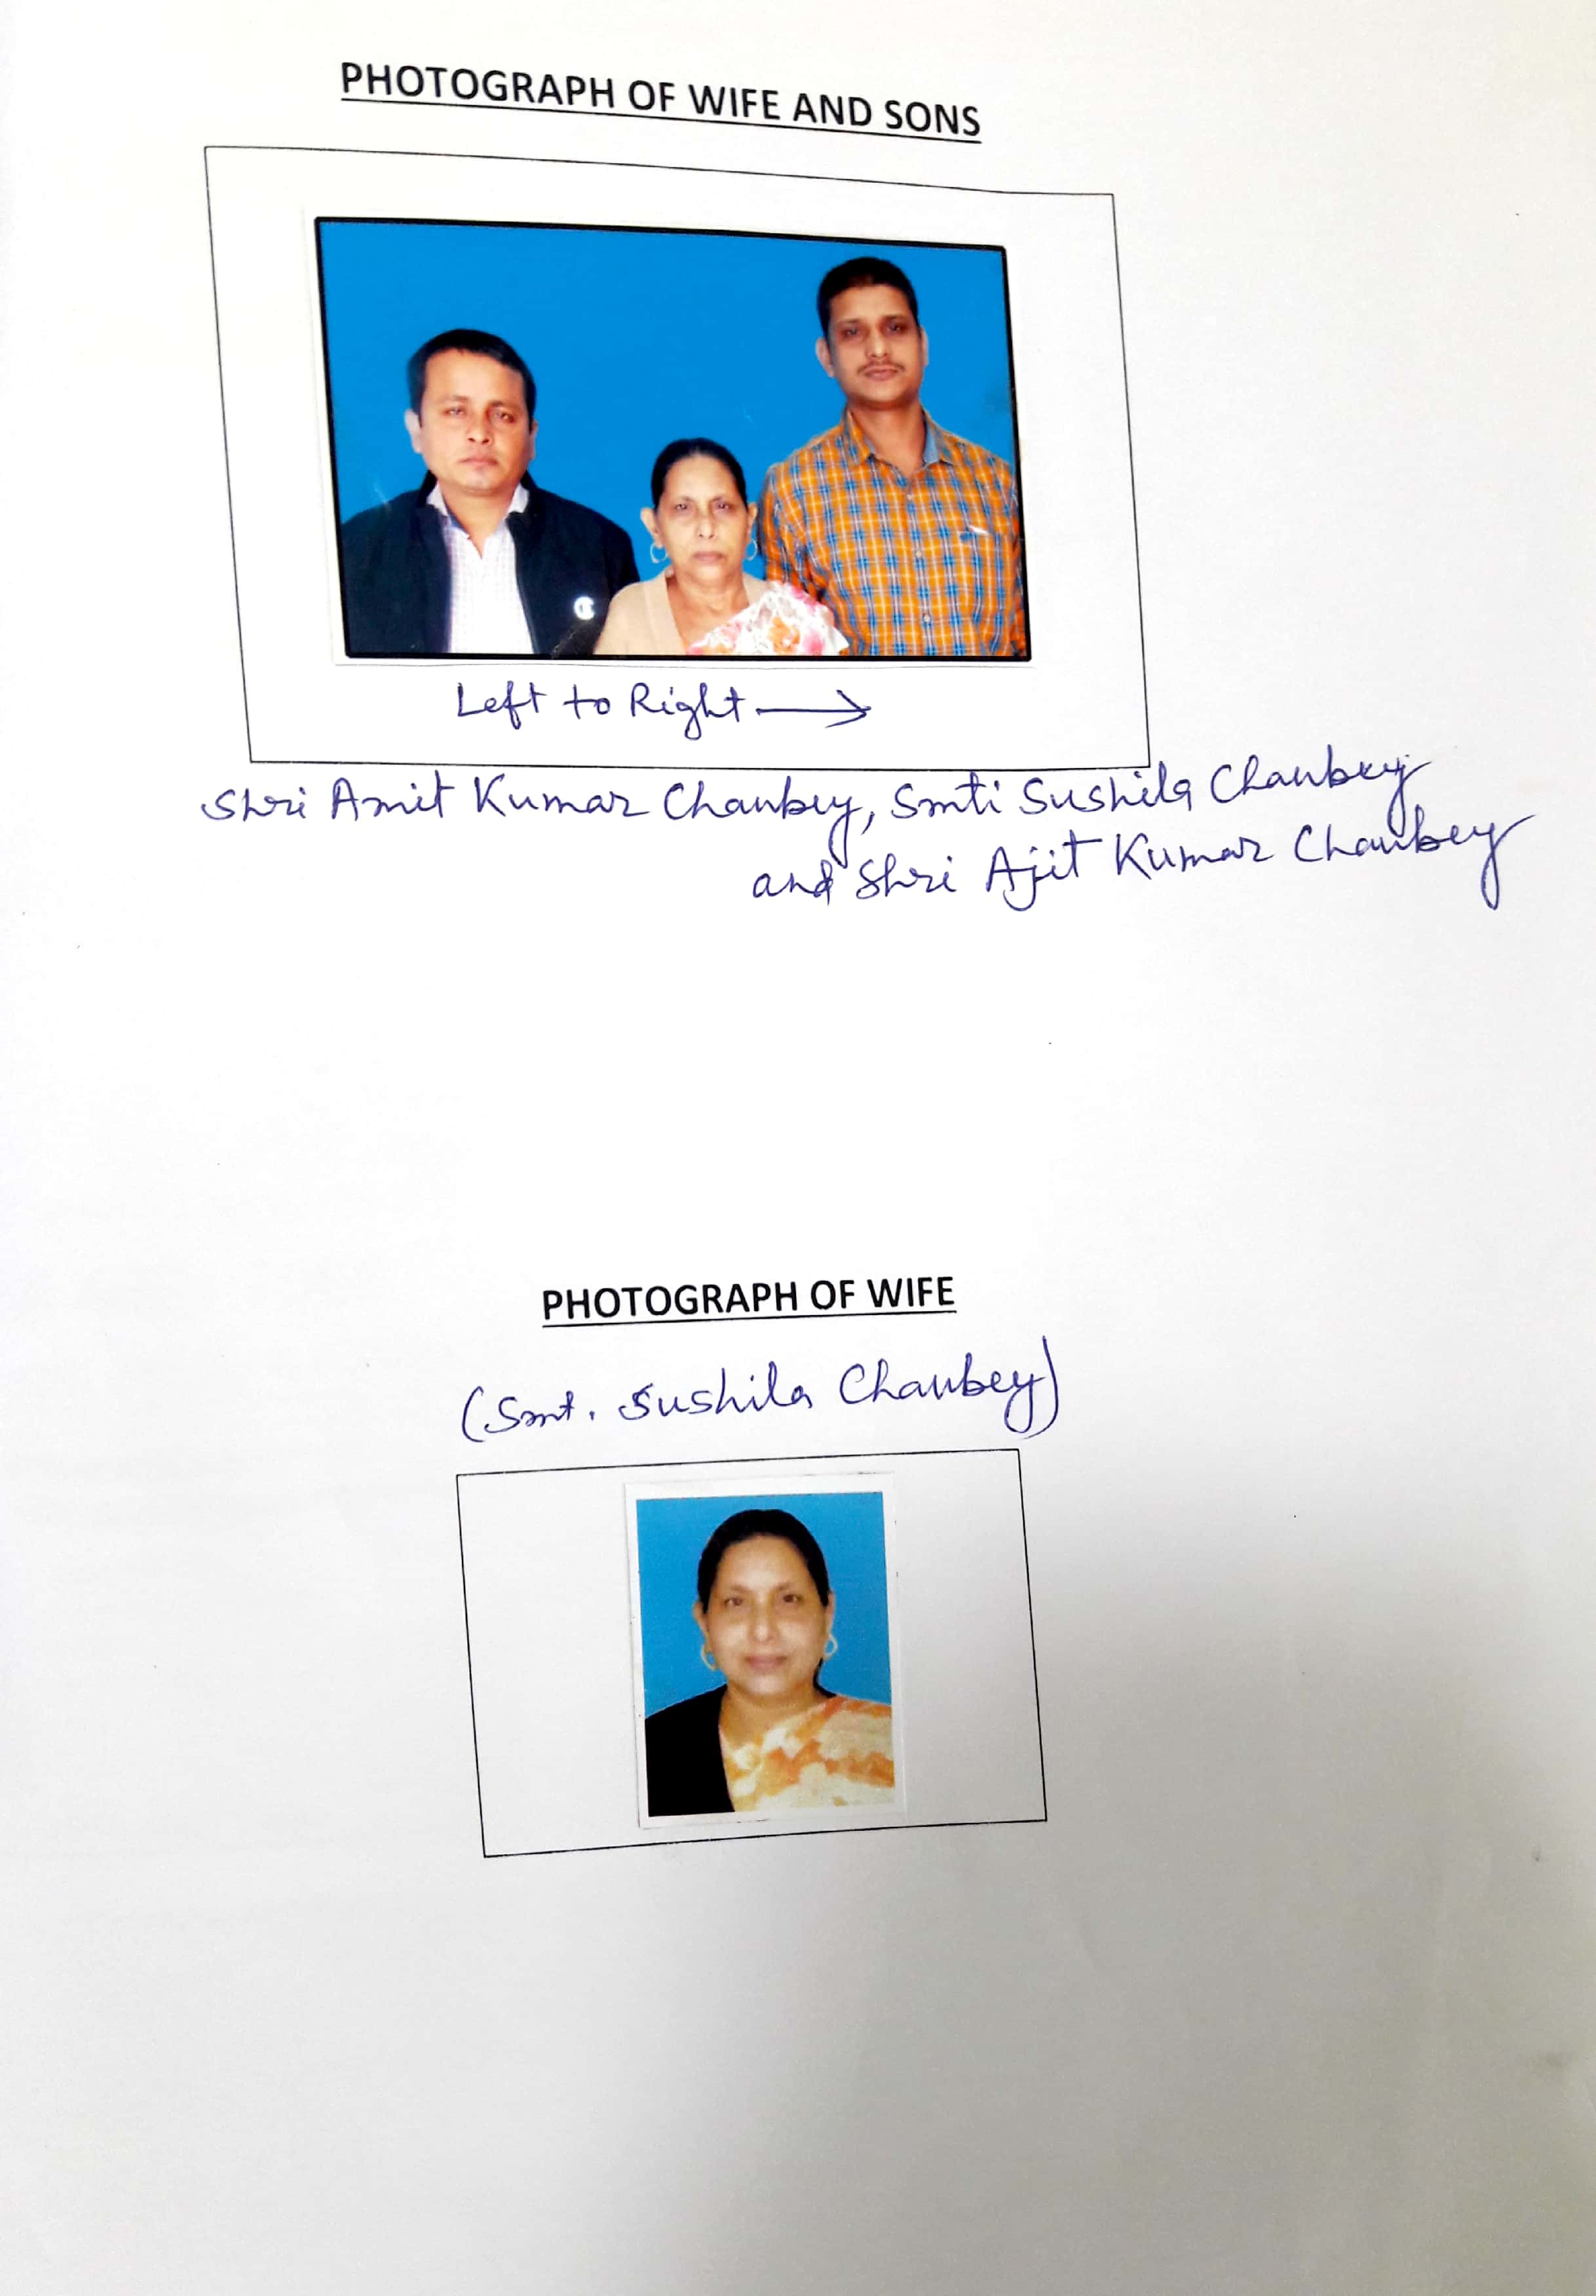 PHOTOGRAPH OF WIFE AND SONS
Left to Right →
Shri Amit Kumar Chaubey, Smti Sushila Chaubey
and Shri Ajit Kumar Chaubey
PHOTOGRAPH OF WIFE
(Smt. Sushila Chaubey)